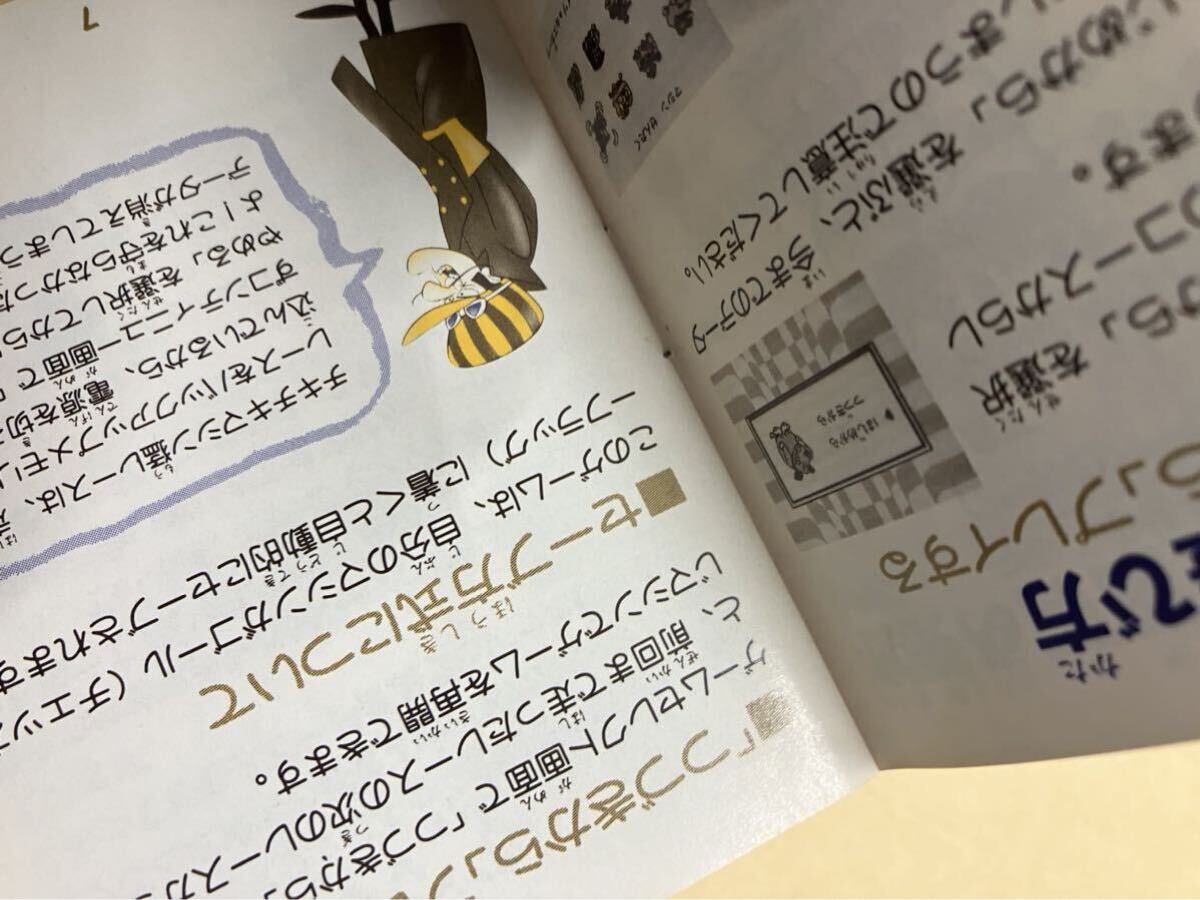 で方
ら」プレイする
から」を選択
のコースからし
ます。
じめから」を選ぶと、今までのデータ
しまうので注意してください。
はじめから
つづきから
マシン せんたく
「つづきから」プ
ゲームセレクト画面で「つづきから」
と、前回まで走ったレースの次のレースから
じマシンでゲームを再開できます。
セーブ方式について
このゲームは、自分のマシンがゴール（チェッカ
ーフラッグ）に着くと自動的にセーブされます
チキチキマシン猛レースは、
レースをバックアップメモ
込んでいるから、電源を切
ずコンティニュー画面で
やめる」を選択してから
よ！これを守らなかった
データが消えてしまう
7